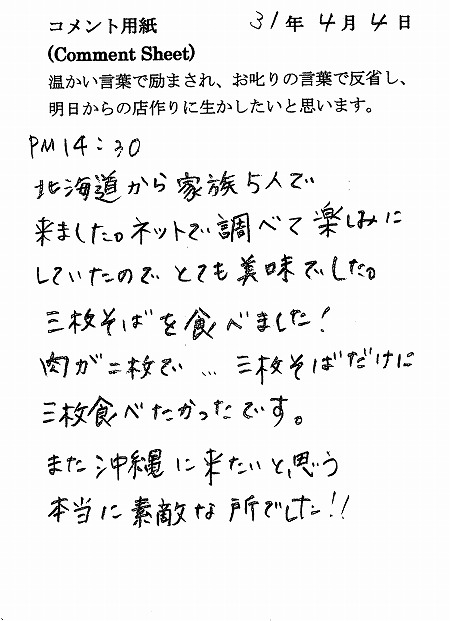 コメント用紙 31年4月4日
(Comment Sheet)
温かい言葉で励まされ、お叱りの言葉で反省し、
明日からの店作りに生かしたいと思います。
PM14:30
北海道から家族5人で
来ました。ネットで調べて楽しみに
していたのでとても美味でした。
三枚そばを食べました!
肉が二枚で…三枚そばだけに
三枚食べたかったです。
また沖縄に来たいと思う
本当に素敵な所でした!!